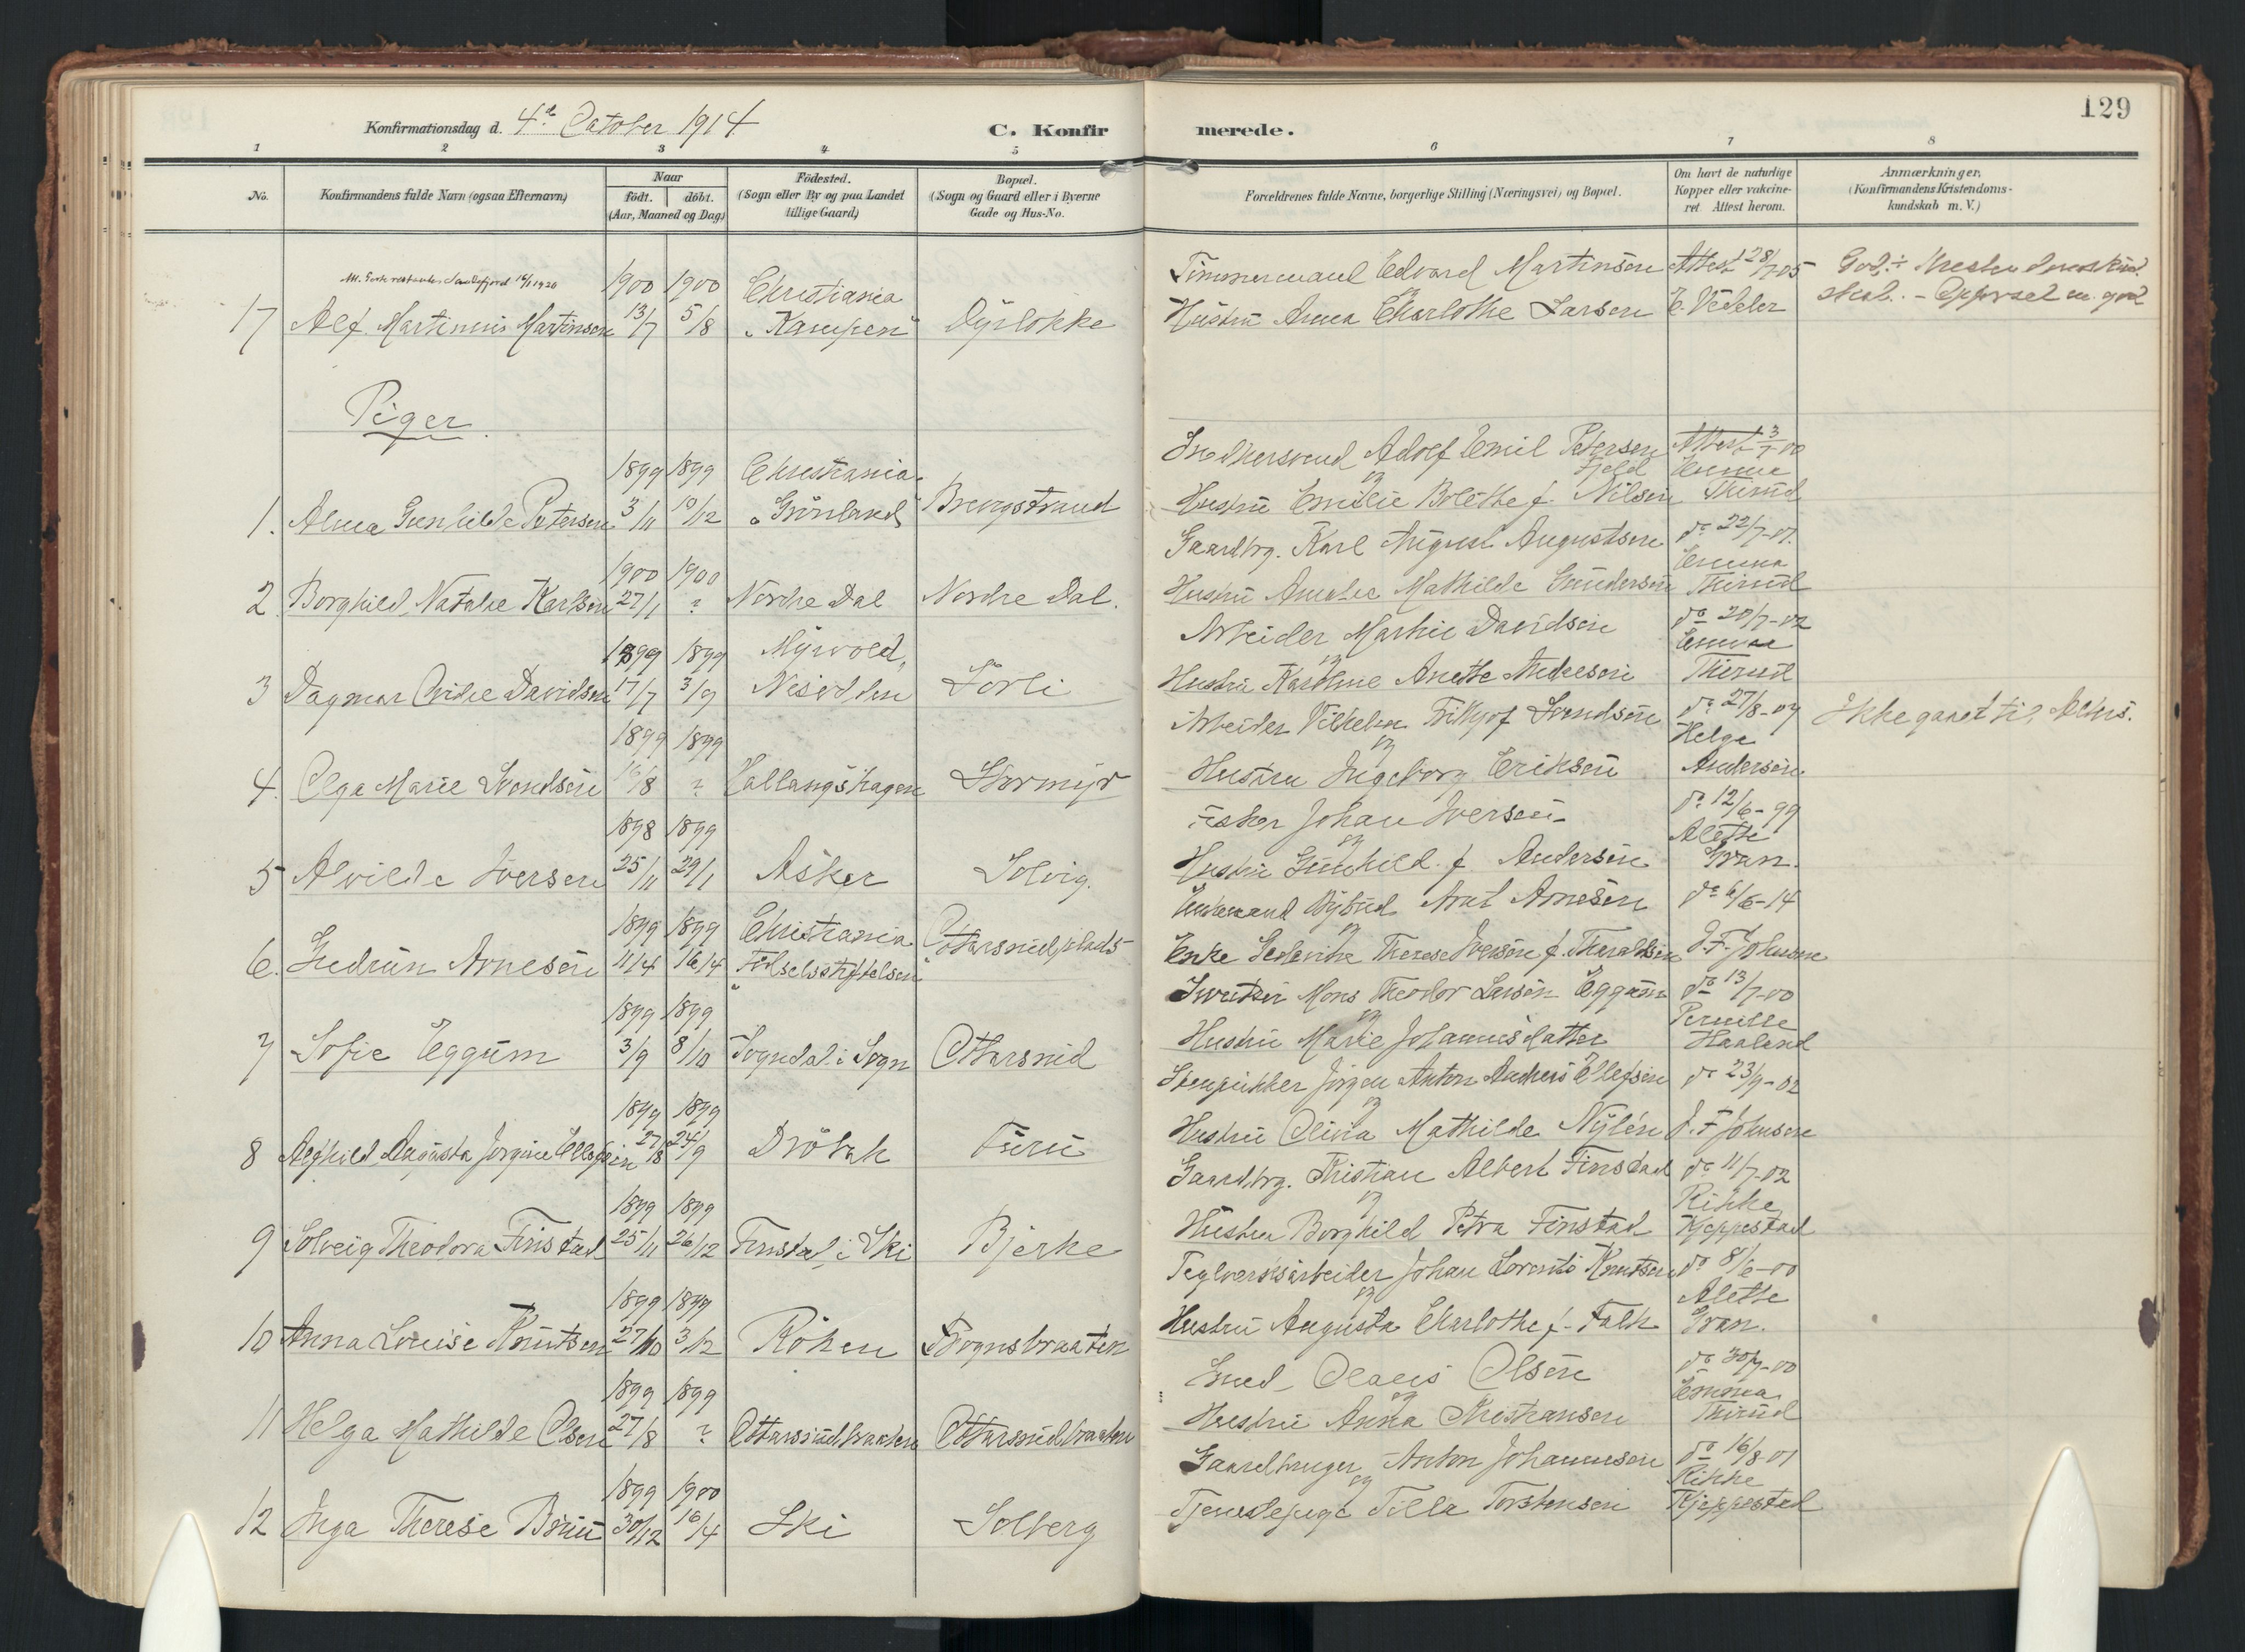 129
Konfirmationsdag d. 4de October 1914
C. Konfirmerede.
1 2 3 4 5 6 7 8
No.
Konfirmandens fulde Navn (ogsaa Efternavn)
Naar
födt. döbt.
(Aar, Maaned og Dag)
Födested.
(Sogn eller By og paa Landet
tillige Gaard)
Bopæl.
(Sogn og Gaard eller i Byerne
Gade og Hus-No.
Forældrenes fulde Navne, borgerlige Stilling (Næringsvei) og Bopæl.
Om havt de naturlige
Kopper eller vakcine-
ret Attest herom.
Anmærkninger,
(Konfirmandens Kristendoms-
kundskab m. V.)
1900 1900 Christiania Timmermand Edvard Martinsen Attest 28/7-05
17 Alf Martinius Martinsen 13/7 5/8 "Kampen" Dyrløkke og Hustru Anna Charlothe Larsen E. Vedeler
Piger
1899 1899 Christiania Adolf Emil Petersen Attest 3/7-00
Fjeld Emma
1. Alma Gunhilde Petersen 3/11 10/12 "Grönland" Brevigstrand og Hustru Emilie Bolethe f. Nilsen Thirud
1900 1900 Gaardbrg. Karl August Augustsen do 22/7-01
Emma
2 Borghild Natalie Karlsen 27/1 ? Nordre Dal Nordre Dal. Hustru Amalie Mathilde Gundersen Thirud
1899 1899 Myrvold, Arbeider Martin Davidsen do 20/7-02
Emma
3 Dagmar Davidsen 17/7 3/9 Nesodden Sörli og Hustru Karoline Anette Andersen Thirud
1899 1899 Arbeider Vilhelm Frithjof Svendsen do 27/8-04 Ikke gaaet til Alters.
Helga
4. Olga Marie Svendsen 16/8 ? Hallangshagen Stormyr og Hustru Ingeborg Eriksen Andersen
1898 1899 Fisker Johan Iversen do 12/6-99
Alette
5 Alvilde Iversen 25/11 29/1 Asker Solvig. og Hustru Gunhild f. Andersen Gran.
1899 1899 Christiania Ottarsrudplads Arnt Arnesen do 6/6-14
6. Gudrun Arnesen 11/4 16/4 Födselsstiftelsen og Enke Therese Iversen f. Tharaldsen J. F. Johnsen
1899 1899 Mons Theodor Larsen Eggum do 13/7-00
Pernille
7 Sofie Eggum 3/9 8/10 Sogndal i Sogn Ottarsrud og Hustru Marie Johannesdatter Haaland
1899 1899 Stenpikker Jörgen Anton Anders Ellefsen do 23/9-02
8 Alfhild Augusta Jörgine Ellefsen 27/8 24/9 Dröbak Furu og Hustru Olivia Mathilde Nylén J. F. Johnsen
1899 1899 Gaardbrg. Kristian Albert Finstad do 11/7-02
Rikke
9 Solveig Theodora Finstad 25/11 26/12 Finstad i Ski Bjerke og Hustru Borghild Petra Finstad Kjeppestad
1899 1899 Teglverksarbeider Johan Lorents Knutsen do 8/6-00
Alette
10 Anna Louise Knutsen 27/10 3/12 Röken Sognsbraaten og Hustru Augusta Charlothe f. Falk Gran.
1899 1899 Smed Olaus Olsen do 30/7-00
Emma
11 Helga Mathilde Olsen 27/8 ? Ottarsrudbraaten Ottarsrudbraaten og Hustru Anna Kristiansen Thirud
1899 1900 Gaardbruger Anton Johannesen do 16/8-01
Rikke
12 Inga Therese Bruu 30/12 16/4 Ski Solberg og Tjenestepige Tilla Torstensen Kjeppestad